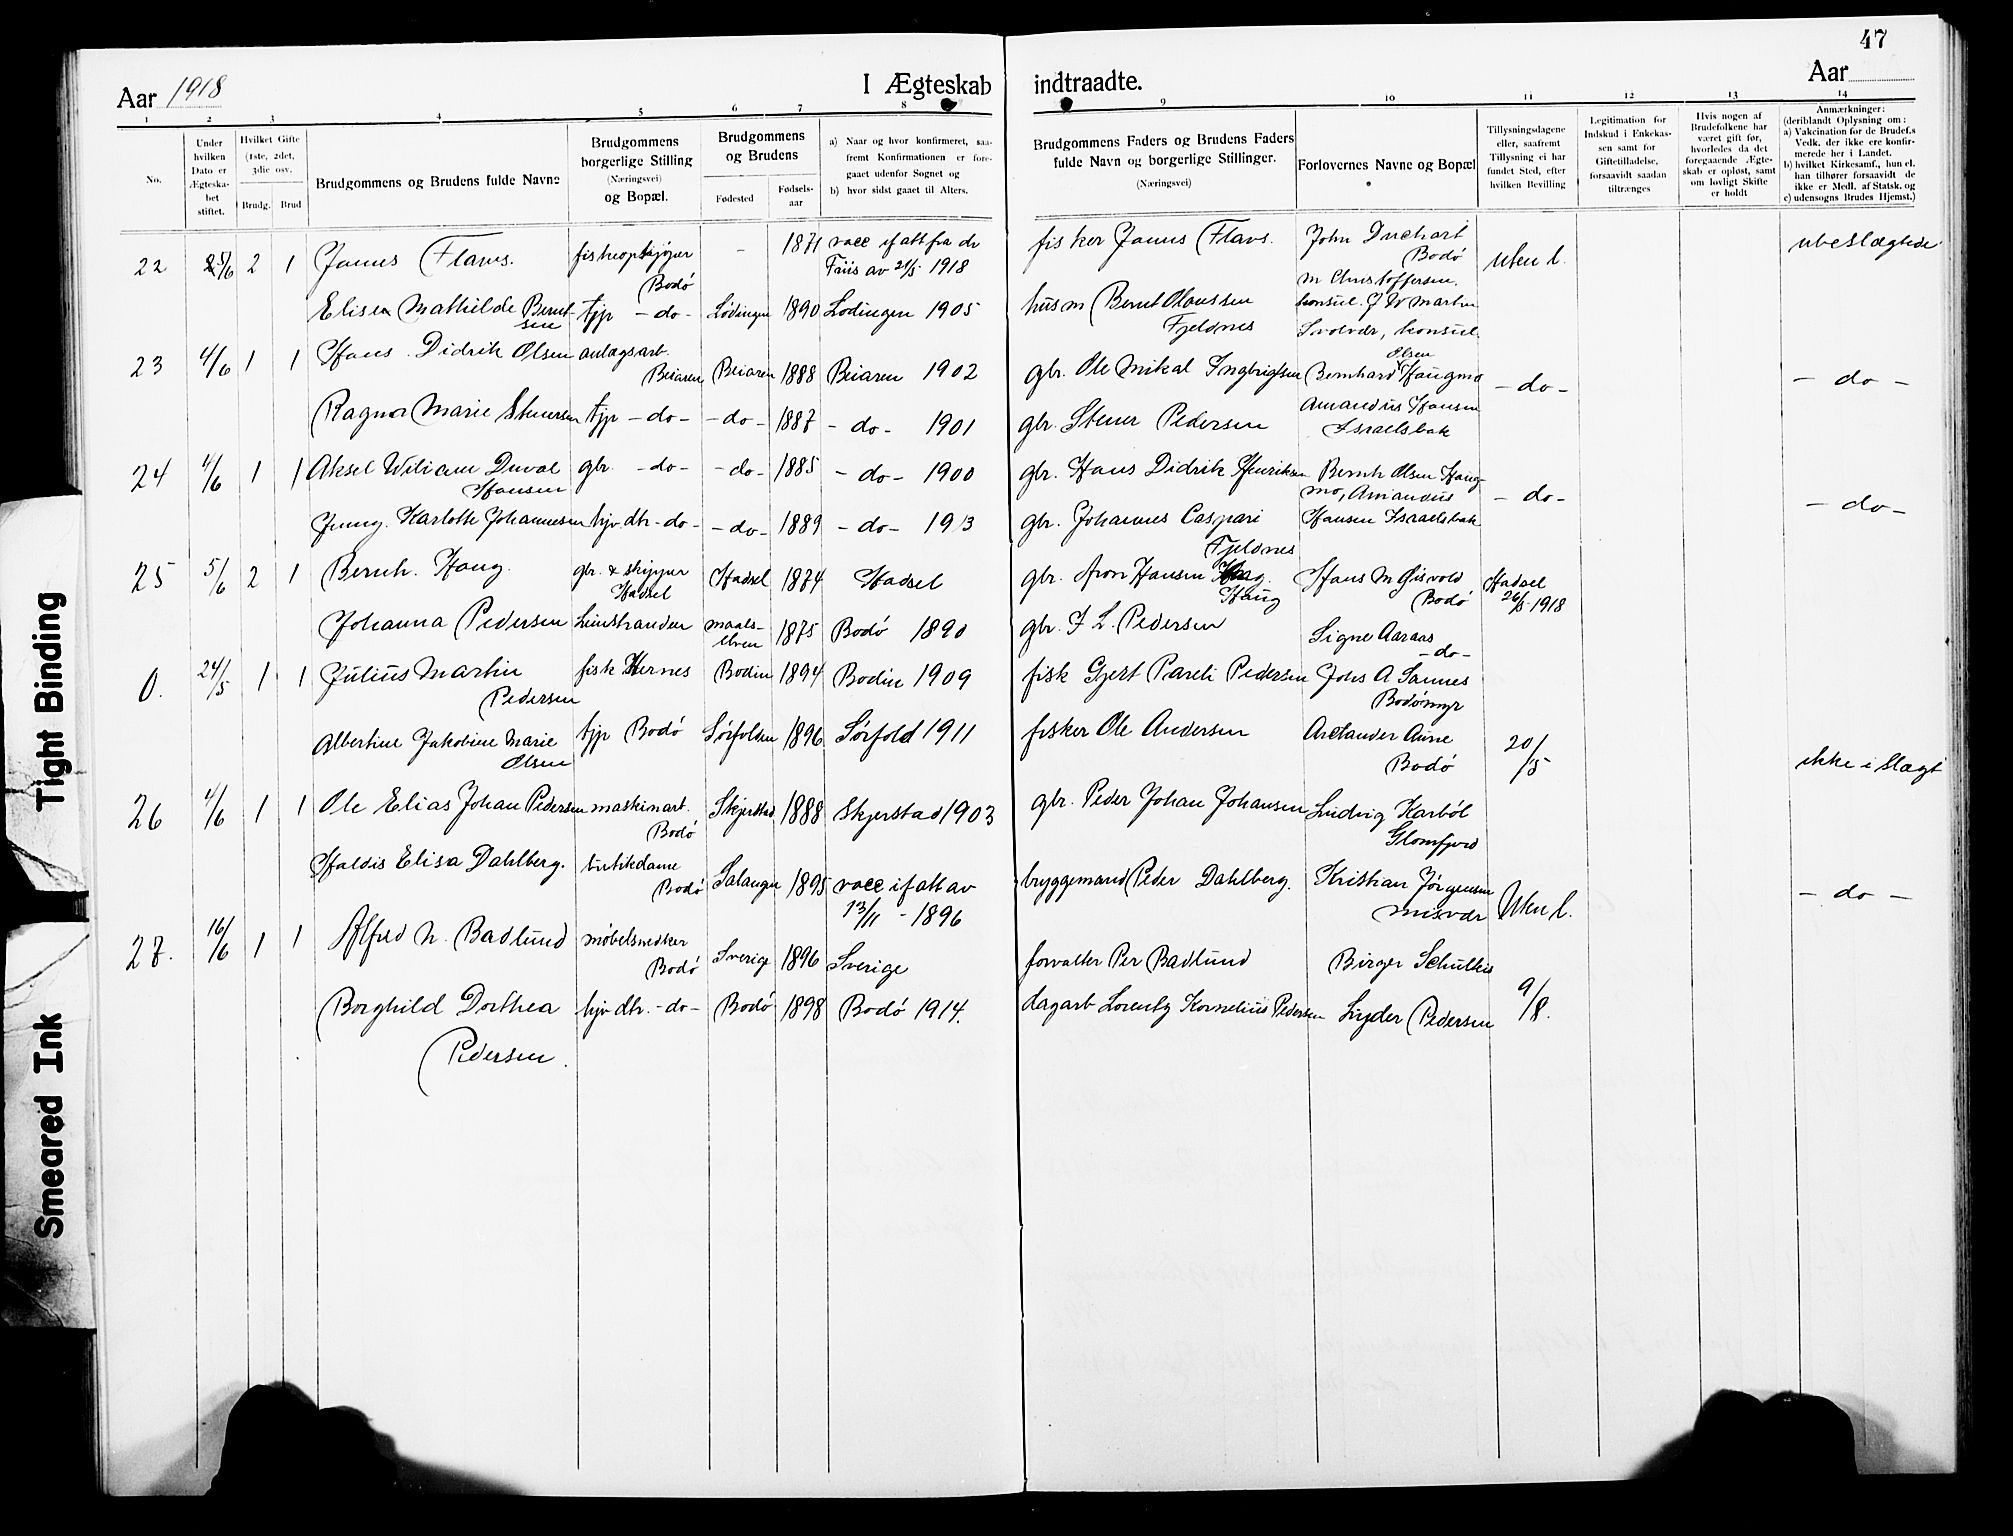 47
Aar 1918
I Ægteskab
indtraadte.
Aar
1 2 3 4 5 6 7 8 9 10 11 12 13 14
No.
Under
hvilken
Dato er
Ægteska-
bet
stiftet.
Hvilket Gifte
(1ste, 2det,
3die osv.
Brudg. Brud
Brudgommens og Brudens fulde Navne
Brudgommens
borgerlige Stilling
(Næringsvei)
og Bopæl.
Brudgommens
og Brudens
Fødested
Fødsels-
aar
a) Naar og hvor konfirmeret, saa-
fremt Konfirmationen er fore-
gaaet udenfor Sognet og
b) hvor sidst gaaet til Alters.
Brudgommens Faders og Brudens Faders
fulde Navn og borgerlige Stillinger.
(Næringsvei)
Forlovernes Navne og Bopæl
Tillysningsdagene
eller, saafremt
Tillysning ei har
fundet Sted, efter
hvilken Bevilling
Legitimation for
Indskud i Enkekas-
sen samt for
Giftetilladelse,
forsaavidt saadan
tiltrænges
Hvis nogen af
Brudefolkene har
været gift før,
hvorledes da det
foregaaende Ægte-
skab er opløst, samt
om lovligt Skifte
er holdt
Anmærkninger:
(deriblandt Oplysning om:
a) Vakcination for de Brudef.s
Vedk. der ikke ere konfir-
merede her i Landet.
b) hvilket Kirkesamf., hun el.
han tilhører forsaavidt de
ikke er Medl. af Statsk. og
c) udensogns Brudes Hjemst.)
22 2 1 James Flaws. fiskeopkjøper Bodó - 1871 vacc if att fra dr
Friis av 21/5 1918
fisker James Flaws. John Duchart
Bodó
uten l. ubeslægtede
Elisea Mathilde Bernt-
sen tjp - do - Lødingen 1890 Lødingen 1905
husm Bernt Olaussen
Fjeldnes
M Christoffersen.
konsul. J W Martin
Svolvær, konsul.
23 4/6 1 1 Hans Didrik Olsen anlægsart.
Beiaren Beiaren 1888 Beiaren 1902
gbr. Ole Mikal Ingbrigtsen Bernhard Olsen Haugmo
- do - - do -
Ragna Marie Stenersen tjp - do - - do - 1887 - do - 1901
gbr. Stener Pedersen Amandus Hansen
Israelsbak
24 4/6 1 1 Aksel Wiliam Duval
Hansen gbr. - do - - do - 1885 - do - 1900
gbr. Hans Didrik Henriksen Bernh Olsen Haug-
mo, Amandus
- do - - do -
Jenny Karlotte Johannesen hjv. dtr - do - - do - 1889 - do - 1913
gbr. Johannes Caspari
Fjeldnes
Hansen Israelsbak
25 5/6 2 1 Bernh. Haug. gbr. & skipper
Hadsel Hadsel 1874 Hadsel
gbr. Aron Hansen
Haug
Hans M Gisvold
Bodó
Hadsel
26/5 1918
Johanna Pedersen Leinstranden Maals-
elven 1875 Bodó 1890
gbr. I L. Pedersen Signe Aaraas
- do -
0. 24/5 1 1 Julius Martin
Pedersen fisk Hernes Bodin 1894 Bodin 1909
fisk Gjert Pareli Pedersen Johs A Sannes
Bodómyr
Albertine Jakobine Marie
Olsen tjp Bodó Sørfolden 1896 Sørfold 1911
fisker Ole Andersen Arelander Aune
Bodó
20/5 ikke i Slægt
26 4/6 1 1 Ole Elias Johan Pedersen maskinart.
Bodó Skjerstad 1888 Skjerstad 1903
gbr. Peder Johan Johansen Ludvig Karbøl
Glomfjord
Haldis Elisa Dahlberg. butikdame
Bodó Salangen 1895 vacc if att av
13/11 - 1896
bryggemand Peder Dahlberg. Kristian Jørgensen
Misvær
Uten l. - do -
27. 16/6 1 1 Alfred N. Badlund møbelsnedker
Bodó Sverige 1896 Sverige
forvalter Per Badlund Birger Schultis
Borghild Dorthea
Pedersen. hjv dtr. - do - Bodó 1898 Bodó 1914.
dagarb Lorentz Kornelius Pedersen Lyder Pedersen
9/8.
Tight Binding
Smeared Ink